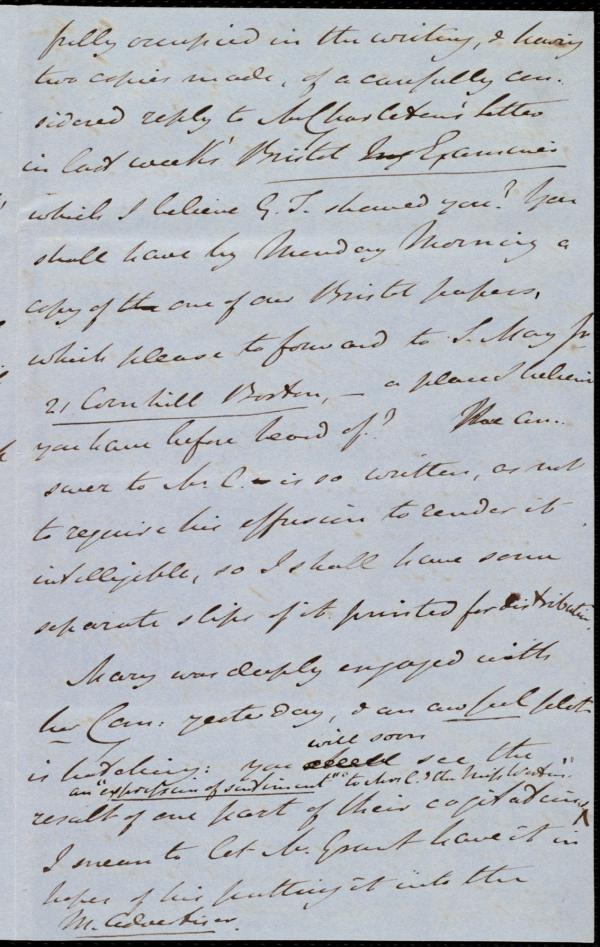 fully occupied in the writing, & having
two copies made, of a carefully con-
sidered reply to Mr Charleton's letter
in last week's Bristol Examiner
which I believe G. T. shewed you? You
shall have by Monday Morning a
copy of the one of our Bristol papers,
which please to forward to S. May Jr
21 Cornhill Boston, — a place I believe
you have before heard of? The an-
swer to Mr. C. is so written, as not
to require his effusion to render it
intelligible, so I shall have some
separate slips of it printed for distribution.
Mary was deeply engaged with
her Com: yesterday, & an awful plot
is hatching: you will soon see the
result of one part of their cogitations
an "expression of sentiment" to Mrs C. & the Miss Westons".
I mean to let Mr. Grant have it in
hopes of his putting it into the
M. Advertiser.